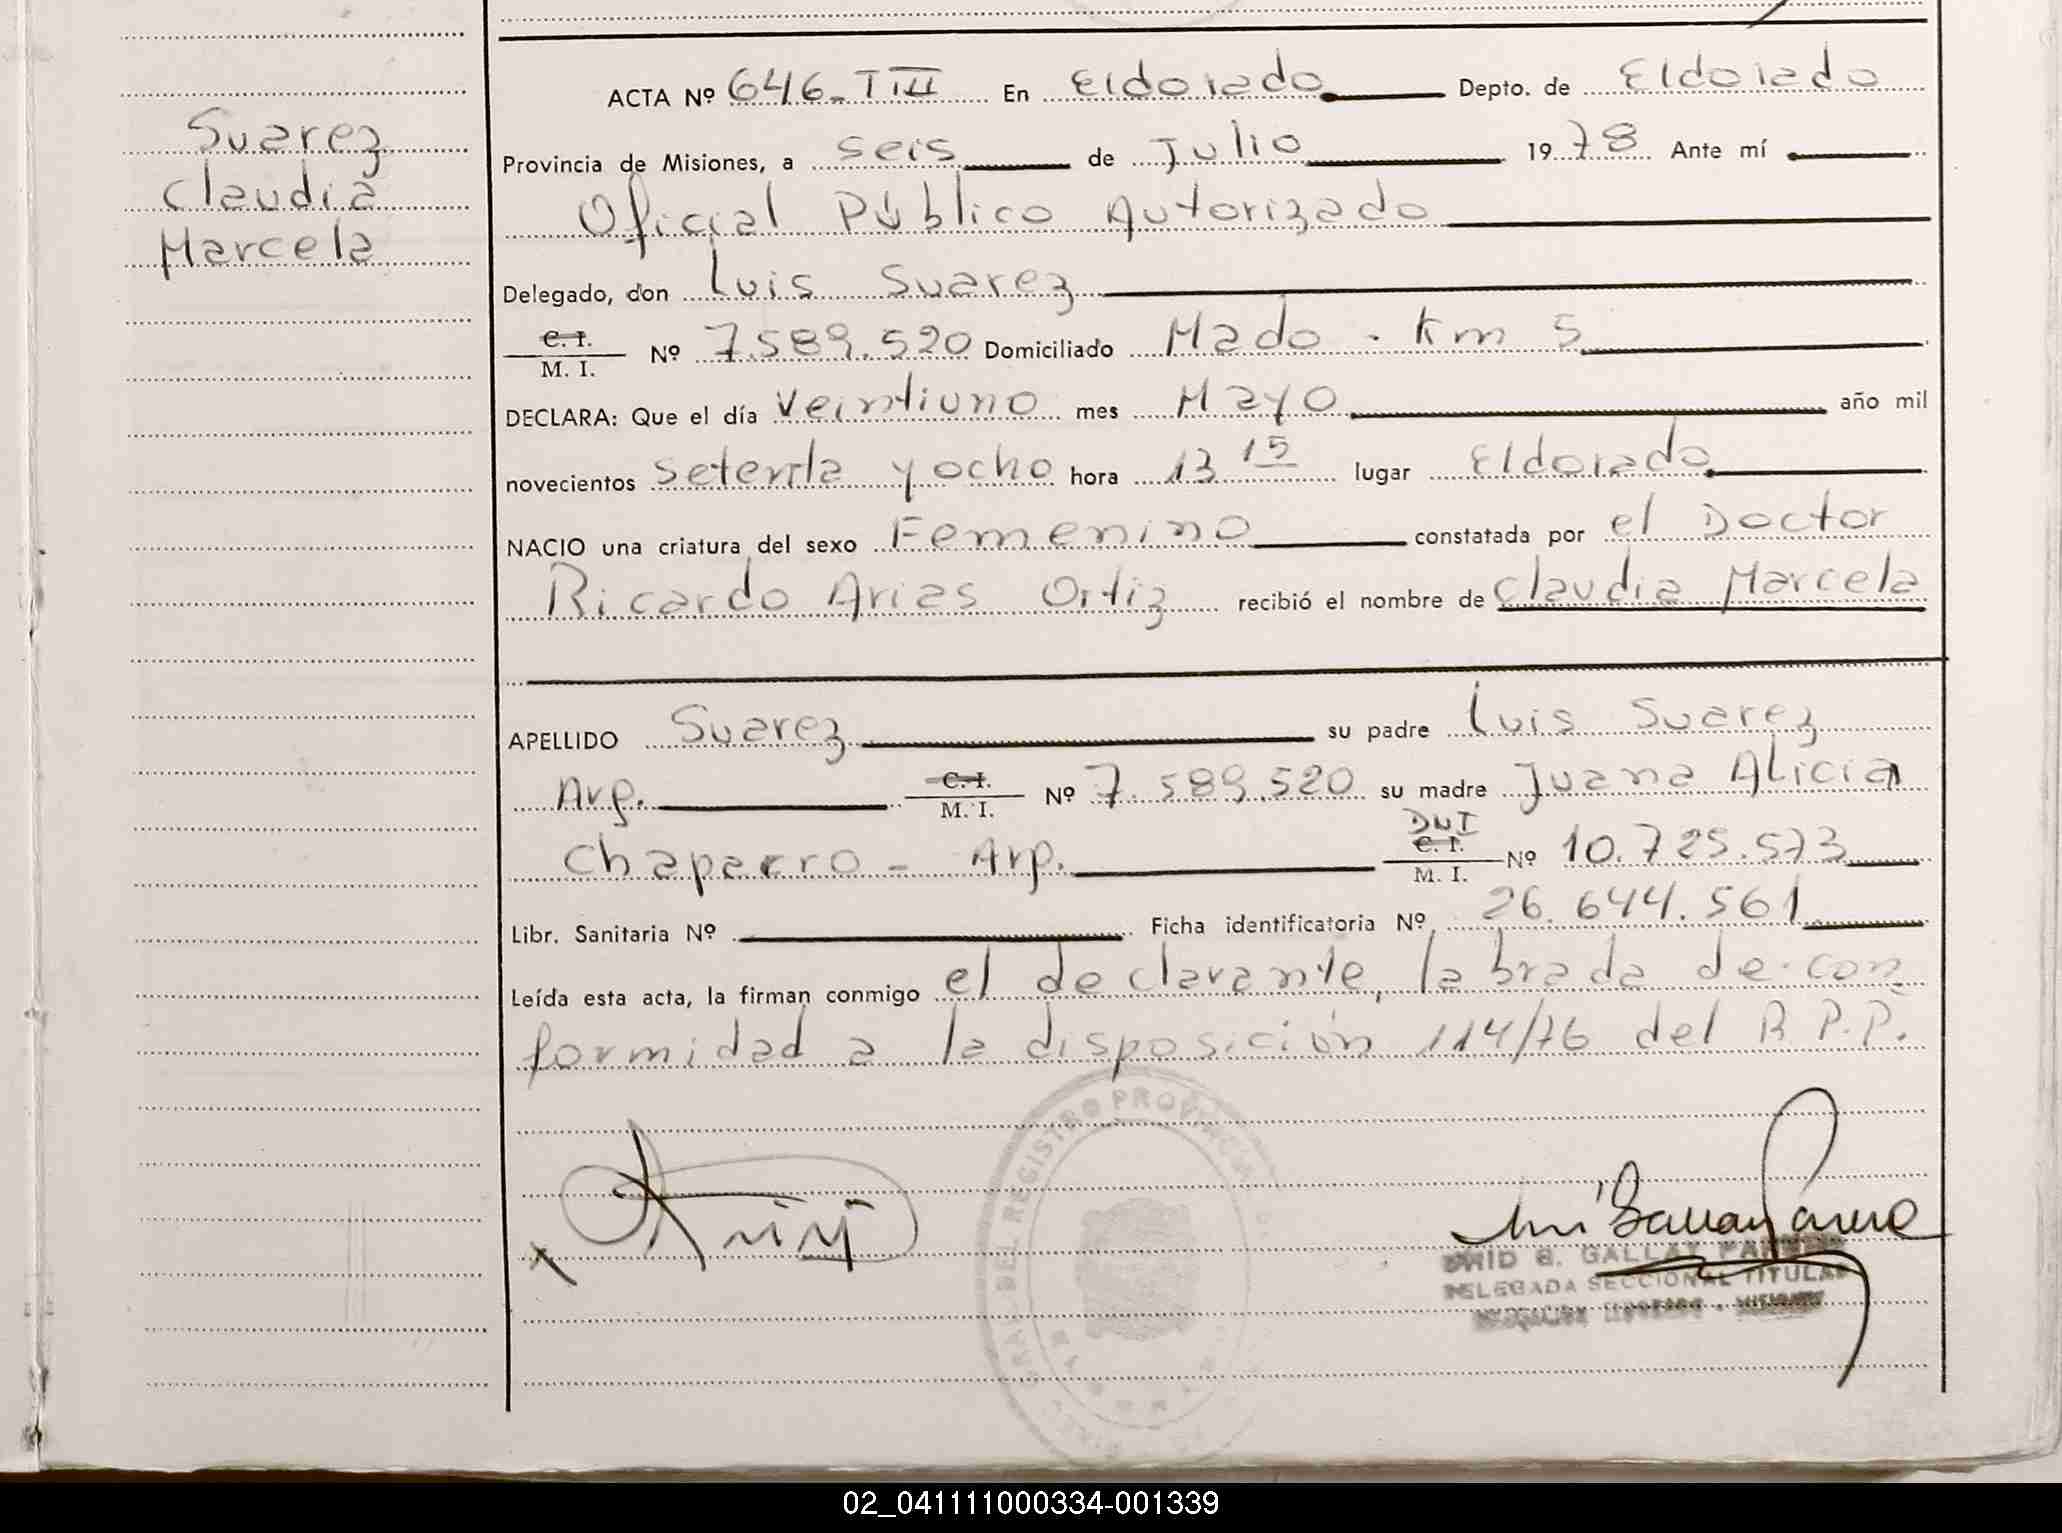 Suarez
Claudia
Marcela
ACTA Nº 646-TIII En Eldorado Depto. de Eldorado
Provincia de Misiones, a seis de Julio 1978 Ante mí
Oficial Público Autorizado
Delegado, don Luis Suarez
C. I.
M. I. Nº 7.589.520 Domiciliado Mado - Km 5
DECLARA: Que el día Veintiuno mes Mayo año mil
novecientos setenta y ocho hora 13 15 lugar Eldorado
NACIO una criatura del sexo Femenino constatada por el Doctor
Ricardo Arias Ortiz recibió el nombre de Claudia Marcela
APELLIDO Suarez su padre Luis Suarez
Arg. C. I. M. I. Nº 7.589.520 su madre Juana Alicia
Chaparro - Arg. DNI C. I. M. I. Nº 10.725.573
Libr. Sanitaria Nº Ficha identificatoria Nº 26.644.561
Leída esta acta, la firman conmigo el declarante, labrada de con
formidad a la disposición 114/76 del R P.P.
DEL REGISTRO PROVINCIAL
B. GALLAY
DELEGADA SECCIONAL TITULAR
02_041111000334-001339